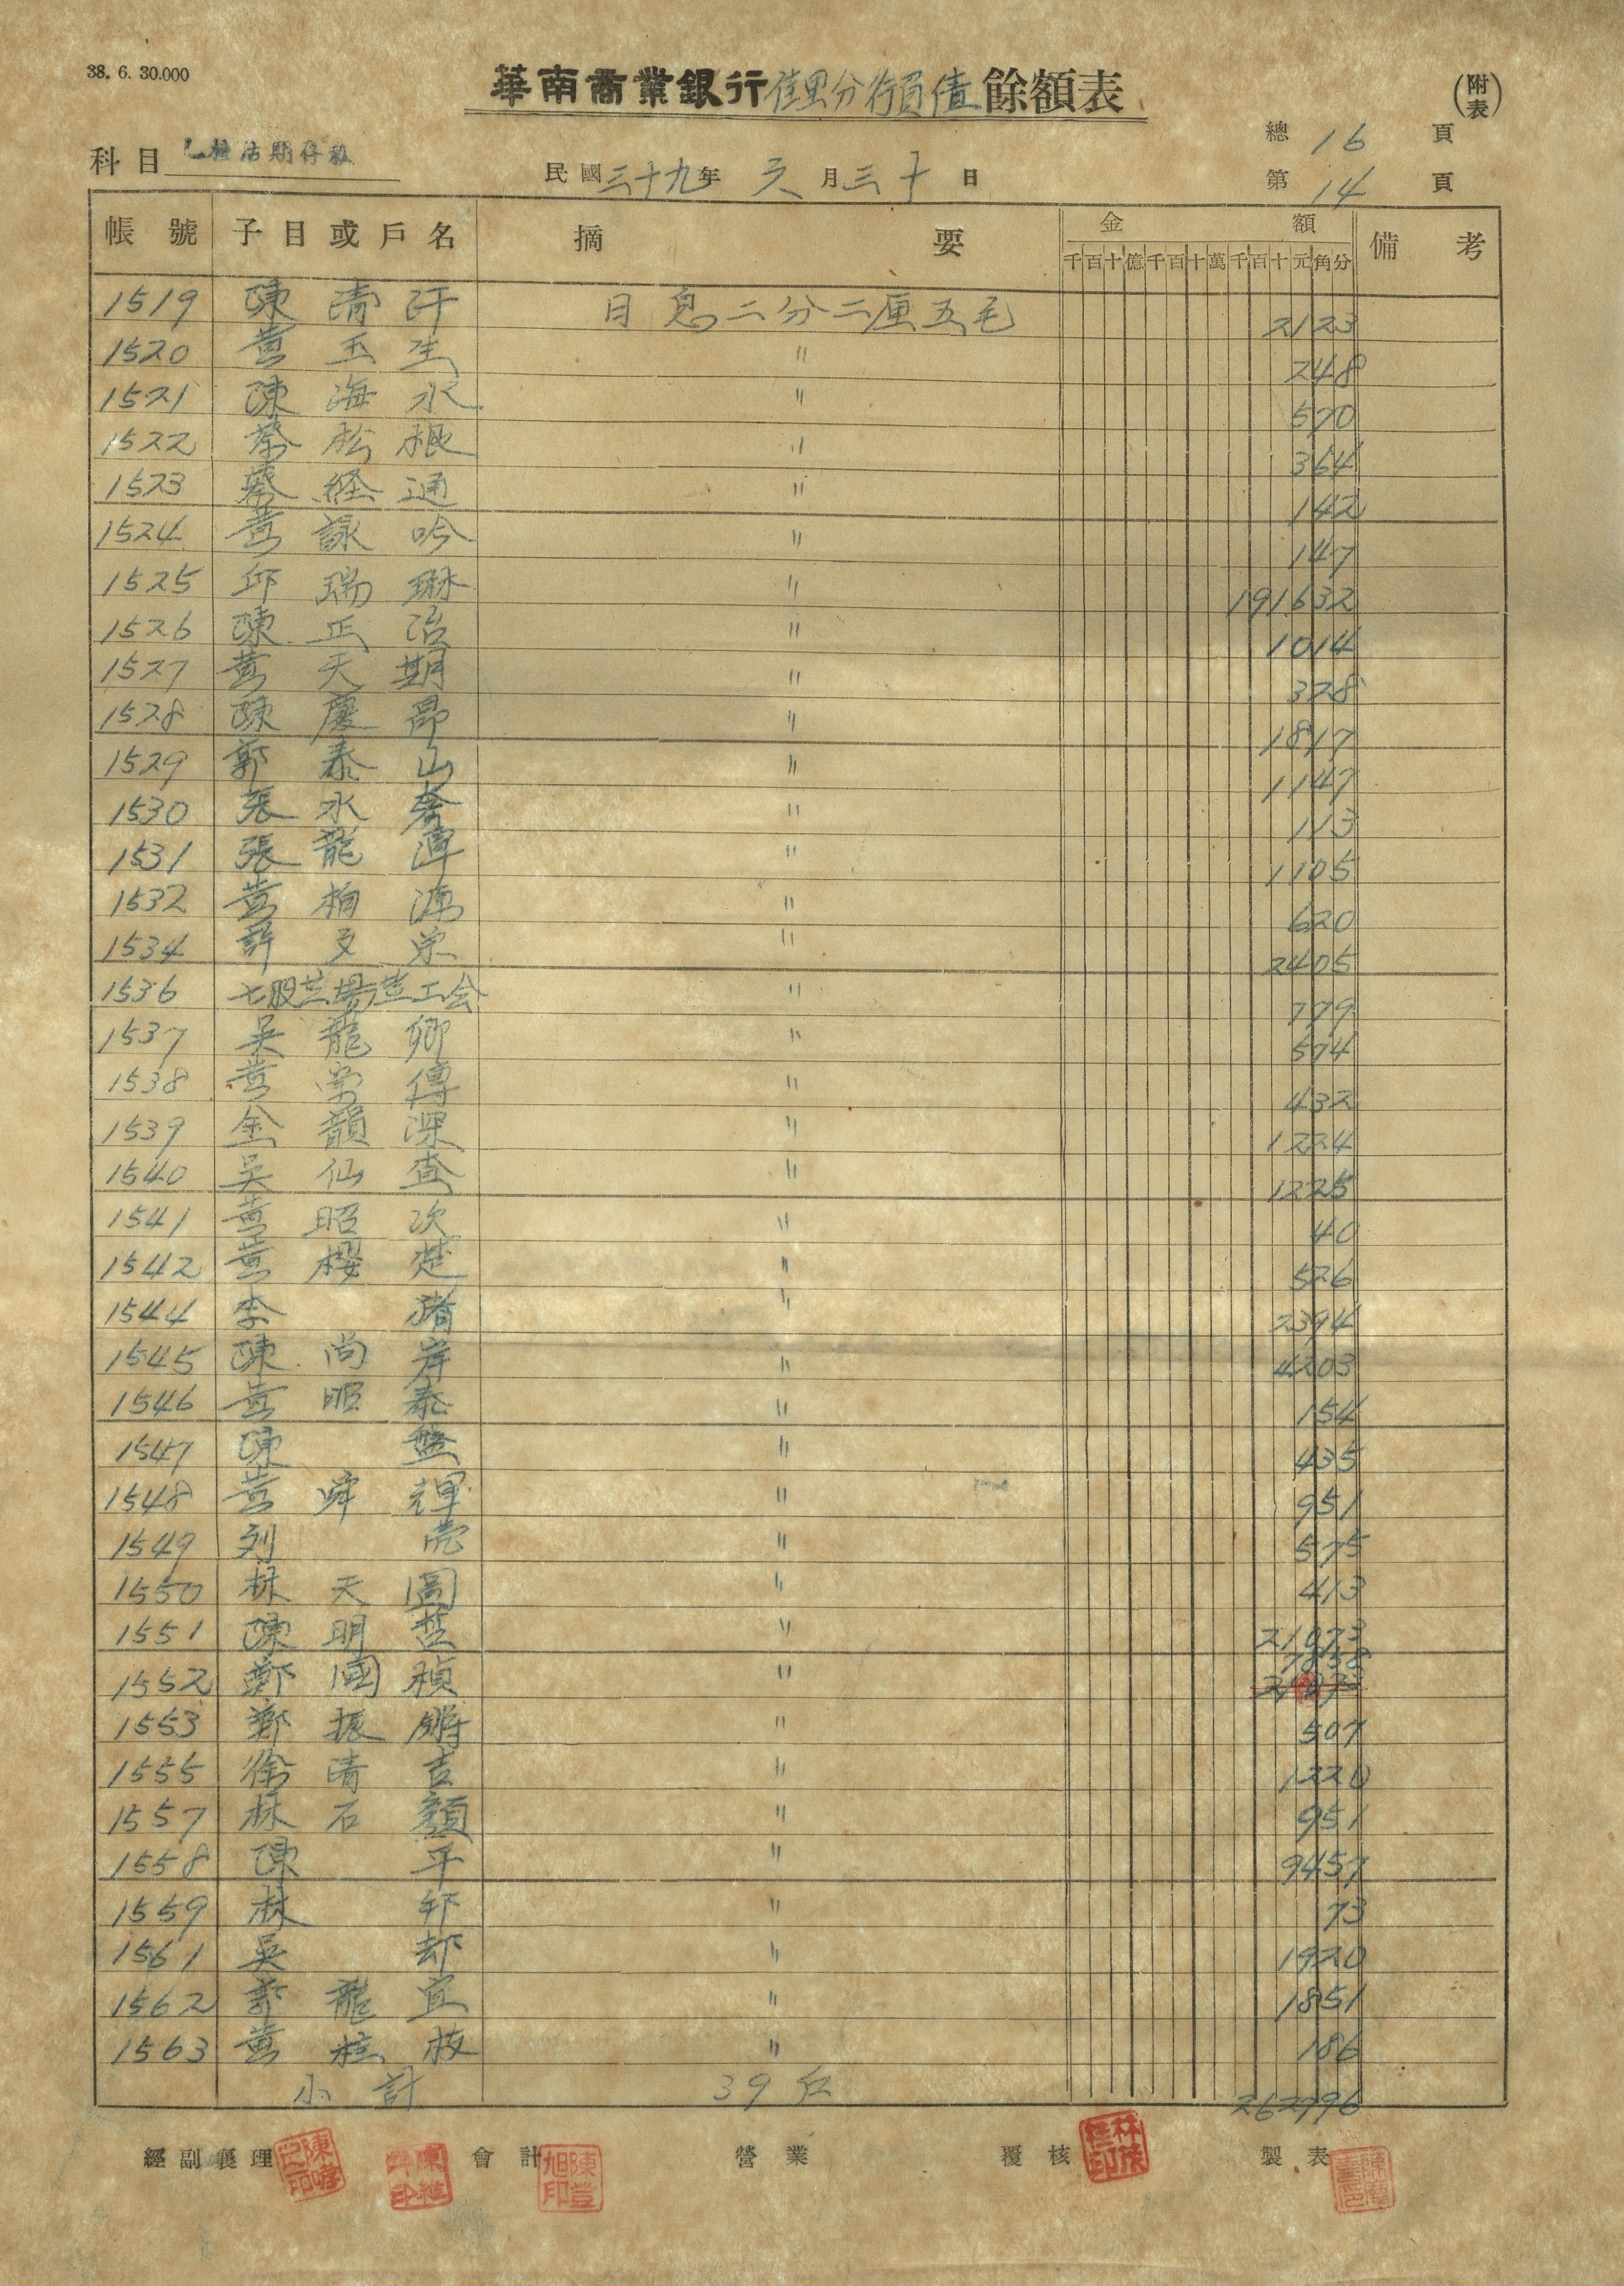 38. 6. 30.000
華南商業銀行佳里分行負債餘額表
(附表)
總 16 頁
科目 乙種活期存款
民國三十九年 六 月 三十 日
第 14 頁
帳號 子目或戶名 摘要 金額 備考
千百十億千百十萬千百十元角分
1519 陳清 日息二分二厘五毛 2123
1520 黃玉生 〃 248
1521 陳海水 〃 570
1522 蔡松根 〃 364
1523 蔡経通 〃 142
1524 黃詠吟 〃 147
1525 邱瑞琳 〃 191632
1526 陳正治 〃 1014
1527 黃天期 〃 328
1528 陳慶昂 〃 1817
1529 郭泰山 〃 1147
1530 張水 〃 113
1531 張龍潭 〃 1105
1532 黃栢源 〃 620
1534 許文宗 〃 2405
1536 七股塩場塩工会 〃 779
1537 吳龍卿 〃 574
1538 黃榮傳 〃 432
1539 金韻深 〃 1224
1540 吳仙查 〃 1225
1541 黃昭次 〃 40
1542 黃櫻楚 〃 526
1544 李猪 〃 2394
1545 陳尚岸 〃 4203
1546 黃昭泰 〃 154
1547 陳盤 〃 435
1548 黃舜輝 〃 951
1549 列 〃 575
1550 林天 〃 413
1551 陳明哲 〃 21073
7858
1552 鄭國禎 〃
1553 鄭振 〃 507
1555 徐清吉 〃 1220
1557 林石顏 〃 951
1558 陳平 〃 9457
1559 林 〃 73
1561 吳却 〃 1920
1562 龍宜 〃 1851
1563 黃桂枝 〃 186
小計 39 262996
經副襄理 會計 營業 覆核 製表